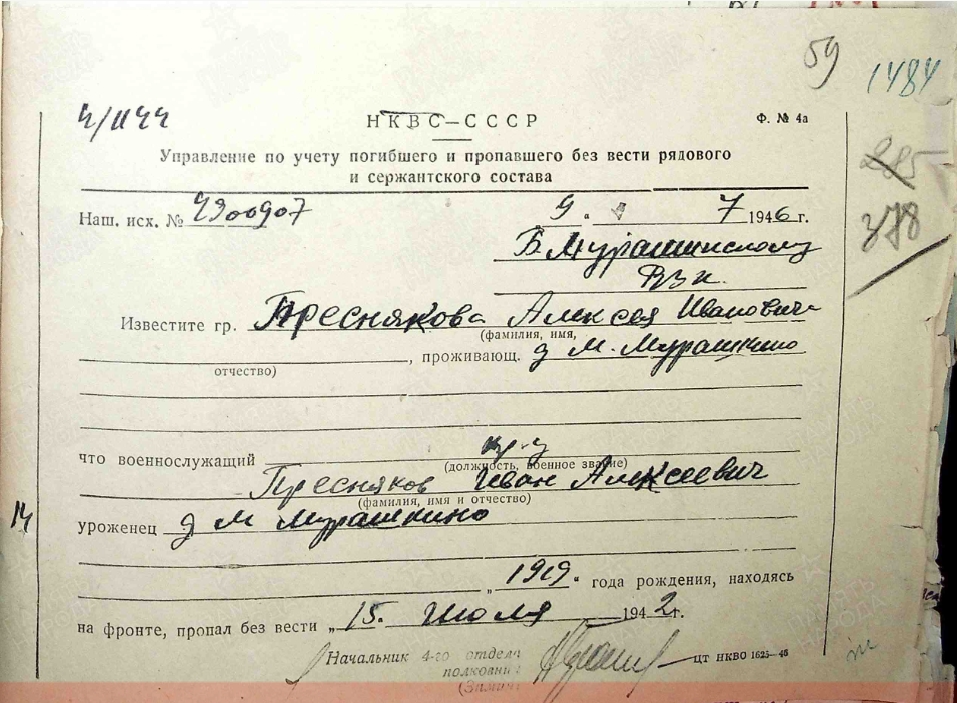 59
1484
4/1144
НКВС—СССР
Ф. № 4а
Управление по учету погибшего и пропавшего без вести рядового
и сержантского состава
285
378
Наш. исх. № 4900907
9 . 7 1946 г.
Б Мурашкинскому
РВк.
Известите гр. Преснякова Алексея Ивановича
(фамилия, имя,
отчество) , проживающ. д М. Мурашкино
что военнослужащий кр-ц
(должность, военное звание)
Пресняков Иван Алексеевич
(фамилия, имя и отчество)
14
уроженец д М Мурашкино
„ 1919 . года рождения, находясь
на фронте, пропал без вести „ 15. Июля 1942 г.
Начальник 4-го отдела
полковник
ЦТ НКВО 1625—46